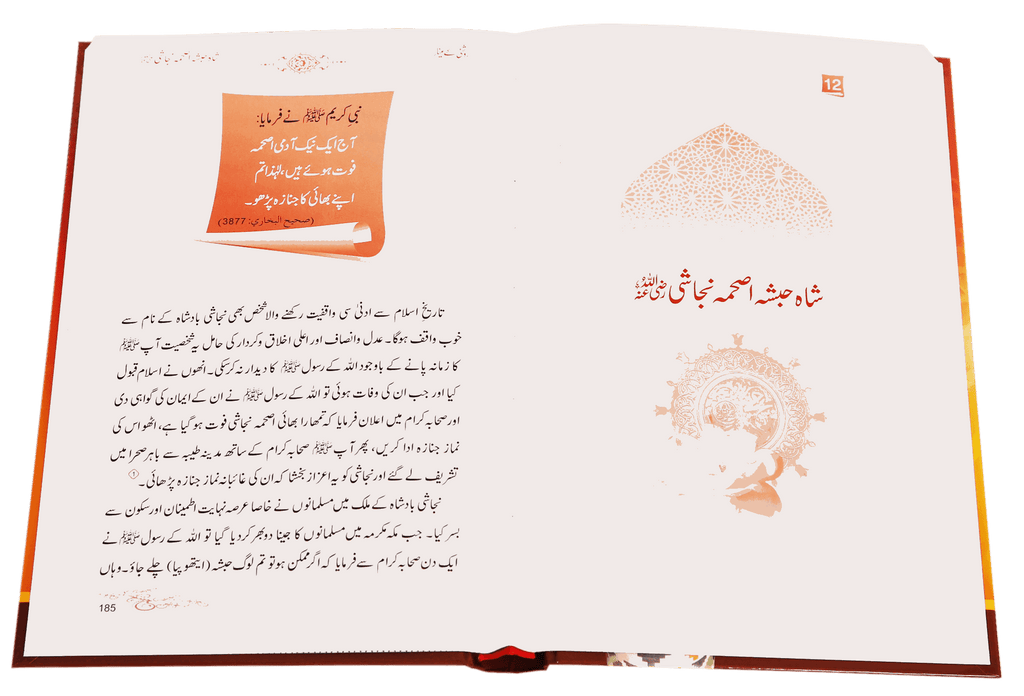 12
شاہ حبشہ اصحمہ نجاشی رضی اللہ عنہ
شاہ حبشہ اصحمہ نجاشی
نبی کریم ﷺ نے فرمایا:
آج ایک نیک آدمی اصحمہ
فوت ہوئے ہیں، لہٰذا تم
اپنے بھائی کا جنازہ پڑھو۔
(صحیح البخاري: 3877)
تاریخ اسلام سے ادنیٰ سی واقفیت رکھنے والا شخص بھی نجاشی بادشاہ کے نام سے
خوب واقف ہوگا۔ عدل وانصاف اور اعلی اخلاق وکردار کی حامل یہ شخصیت آپ ﷺ
کا زمانہ پانے کے باوجود اللہ کے رسول ﷺ کا دیدار نہ کرسکی۔ انھوں نے اسلام قبول
کیا اور جب ان کی وفات ہوئی تو اللہ کے رسول ﷺ نے ان کے ایمان کی گواہی دی
اور صحابہ کرام میں اعلان فرمایا کہ تمھارا بھائی اصحمہ نجاشی فوت ہو گیا ہے، اٹھو اس کی
نماز جنازہ ادا کریں، پھر آپ ﷺ صحابہ کرام کے ساتھ مدینہ طیبہ سے باہر صحرا میں
تشریف لے گئے اور نجاشی کو یہ اعزاز بخشا کہ ان کی غائبانہ نماز جنازہ پڑھائی۔ ①
نجاشی بادشاہ کے ملک میں مسلمانوں نے خاصا عرصہ نہایت اطمینان اور سکون سے
بسر کیا۔ جب مکہ مکرمہ میں مسلمانوں کا جینا دوبھر کردیا گیا تو اللہ کے رسول ﷺ نے
ایک دن صحابہ کرام سے فرمایا کہ اگر ممکن ہو تو تم لوگ حبشہ (ایتھوپیا) چلے جاؤ۔ وہاں
185